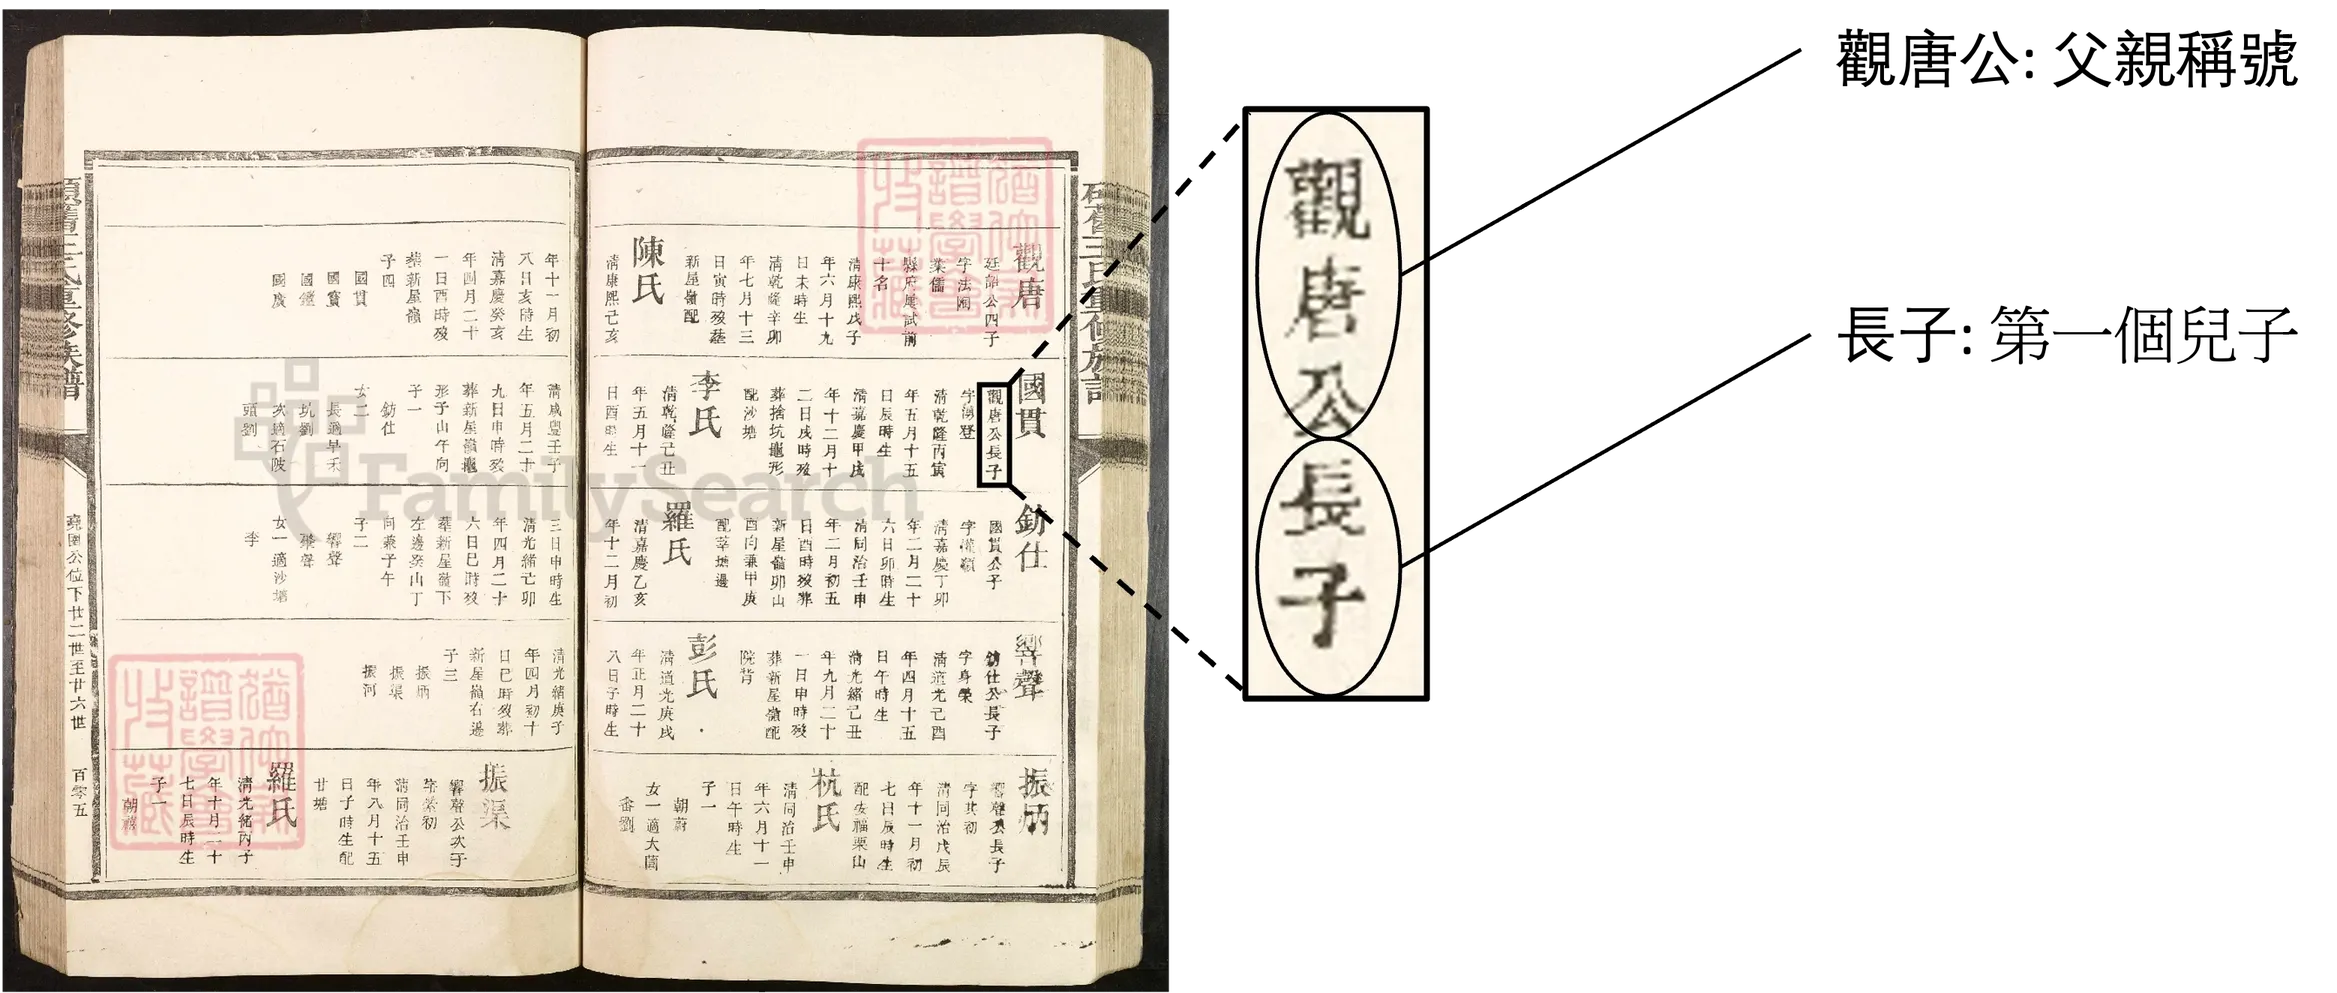 觀唐公: 父親稱號
長子: 第一個兒子
觀唐公長子
觀唐
廷詔公四子
業儒
縣府屢試前
十名
清康熙戊子
年六月十九
日未時生
清乾隆辛卯
年七月十三
日寅時歿葬
新屋嶺配
陳氏
清康熙己亥
年十一月初
八日亥時生
清嘉慶癸亥
年四月二十
一日酉時歿
葬新屋嶺
子四
國貫
國寶
國廣
國貫
觀唐公長子
清乾隆丙寅
年五月十五
日辰時生
清嘉慶甲戌
年十二月十
二日戌時歿
葬捨坑龜形
配沙塘
李氏
清乾隆己丑
年五月十一
日酉時生
清咸豐壬子
年五月二十
九日申時歿
葬新屋嶺龜
形子山午向
子一
鈁仕
女二
長適早禾
坑劉
次適石陂
頭劉
鈁仕
國貫公子
清嘉慶丁卯
年二月二十
六日卯時生
清同治壬申
年二月初五
日酉時歿葬
新屋嶺卯山
酉向兼甲庚
羅氏
清嘉慶乙亥
年十二月初
三日申時生
清光緒己卯
年四月二十
六日巳時歿
葬新屋嶺下
左邊癸山丁
向兼子午
子二
響聲
女一適沙塘
李
響聲
鈁仕公長子
字身榮
清道光己酉
年四月十五
日午時生
清光緒己丑
年九月二十
一日申時歿
葬新屋嶺配
院背
彭氏
清道光庚戌
年正月二十
八日子時生
清光緒庚子
年四月初十
日巳時歿葬
新屋嶺右邊
子三
振炳
振渠
振河
振炳
響聲公長子
字其初
清同治戊辰
年十一月初
七日辰時生
配安福栗山
杭氏
清同治壬申
年六月十一
日午時生
子一
朝蔚
女一適大園
振渠
響聲公次子
清同治壬申
年八月十五
日子時生配
甘塘
羅氏
清光緒丙子
年十月二十
七日辰時生
子一
堯園公位下廿二世至廿六世
百零五
FamilySearch